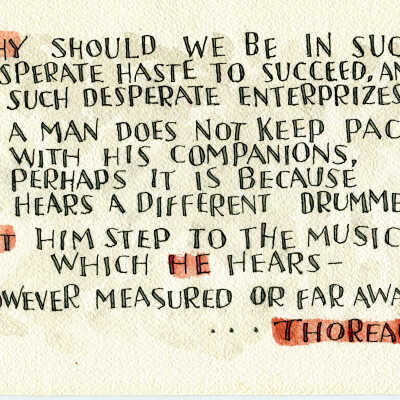 HY SHOULD WE BE IN SUC
SPERATE HASTE TO SUCCEED, AN
SUCH DESPERATE ENTERPRIZES
A MAN DOES NOT KEEP PAC
WITH HIS COMPANIONS,
PERHAPS IT IS BECAUSE
HEARS A DIFFERENT DRUMME
T HIM STEP TO THE MUSIC
WHICH HE HEARS—
OWEVER MEASURED OR FAR AWA
... THOREAU